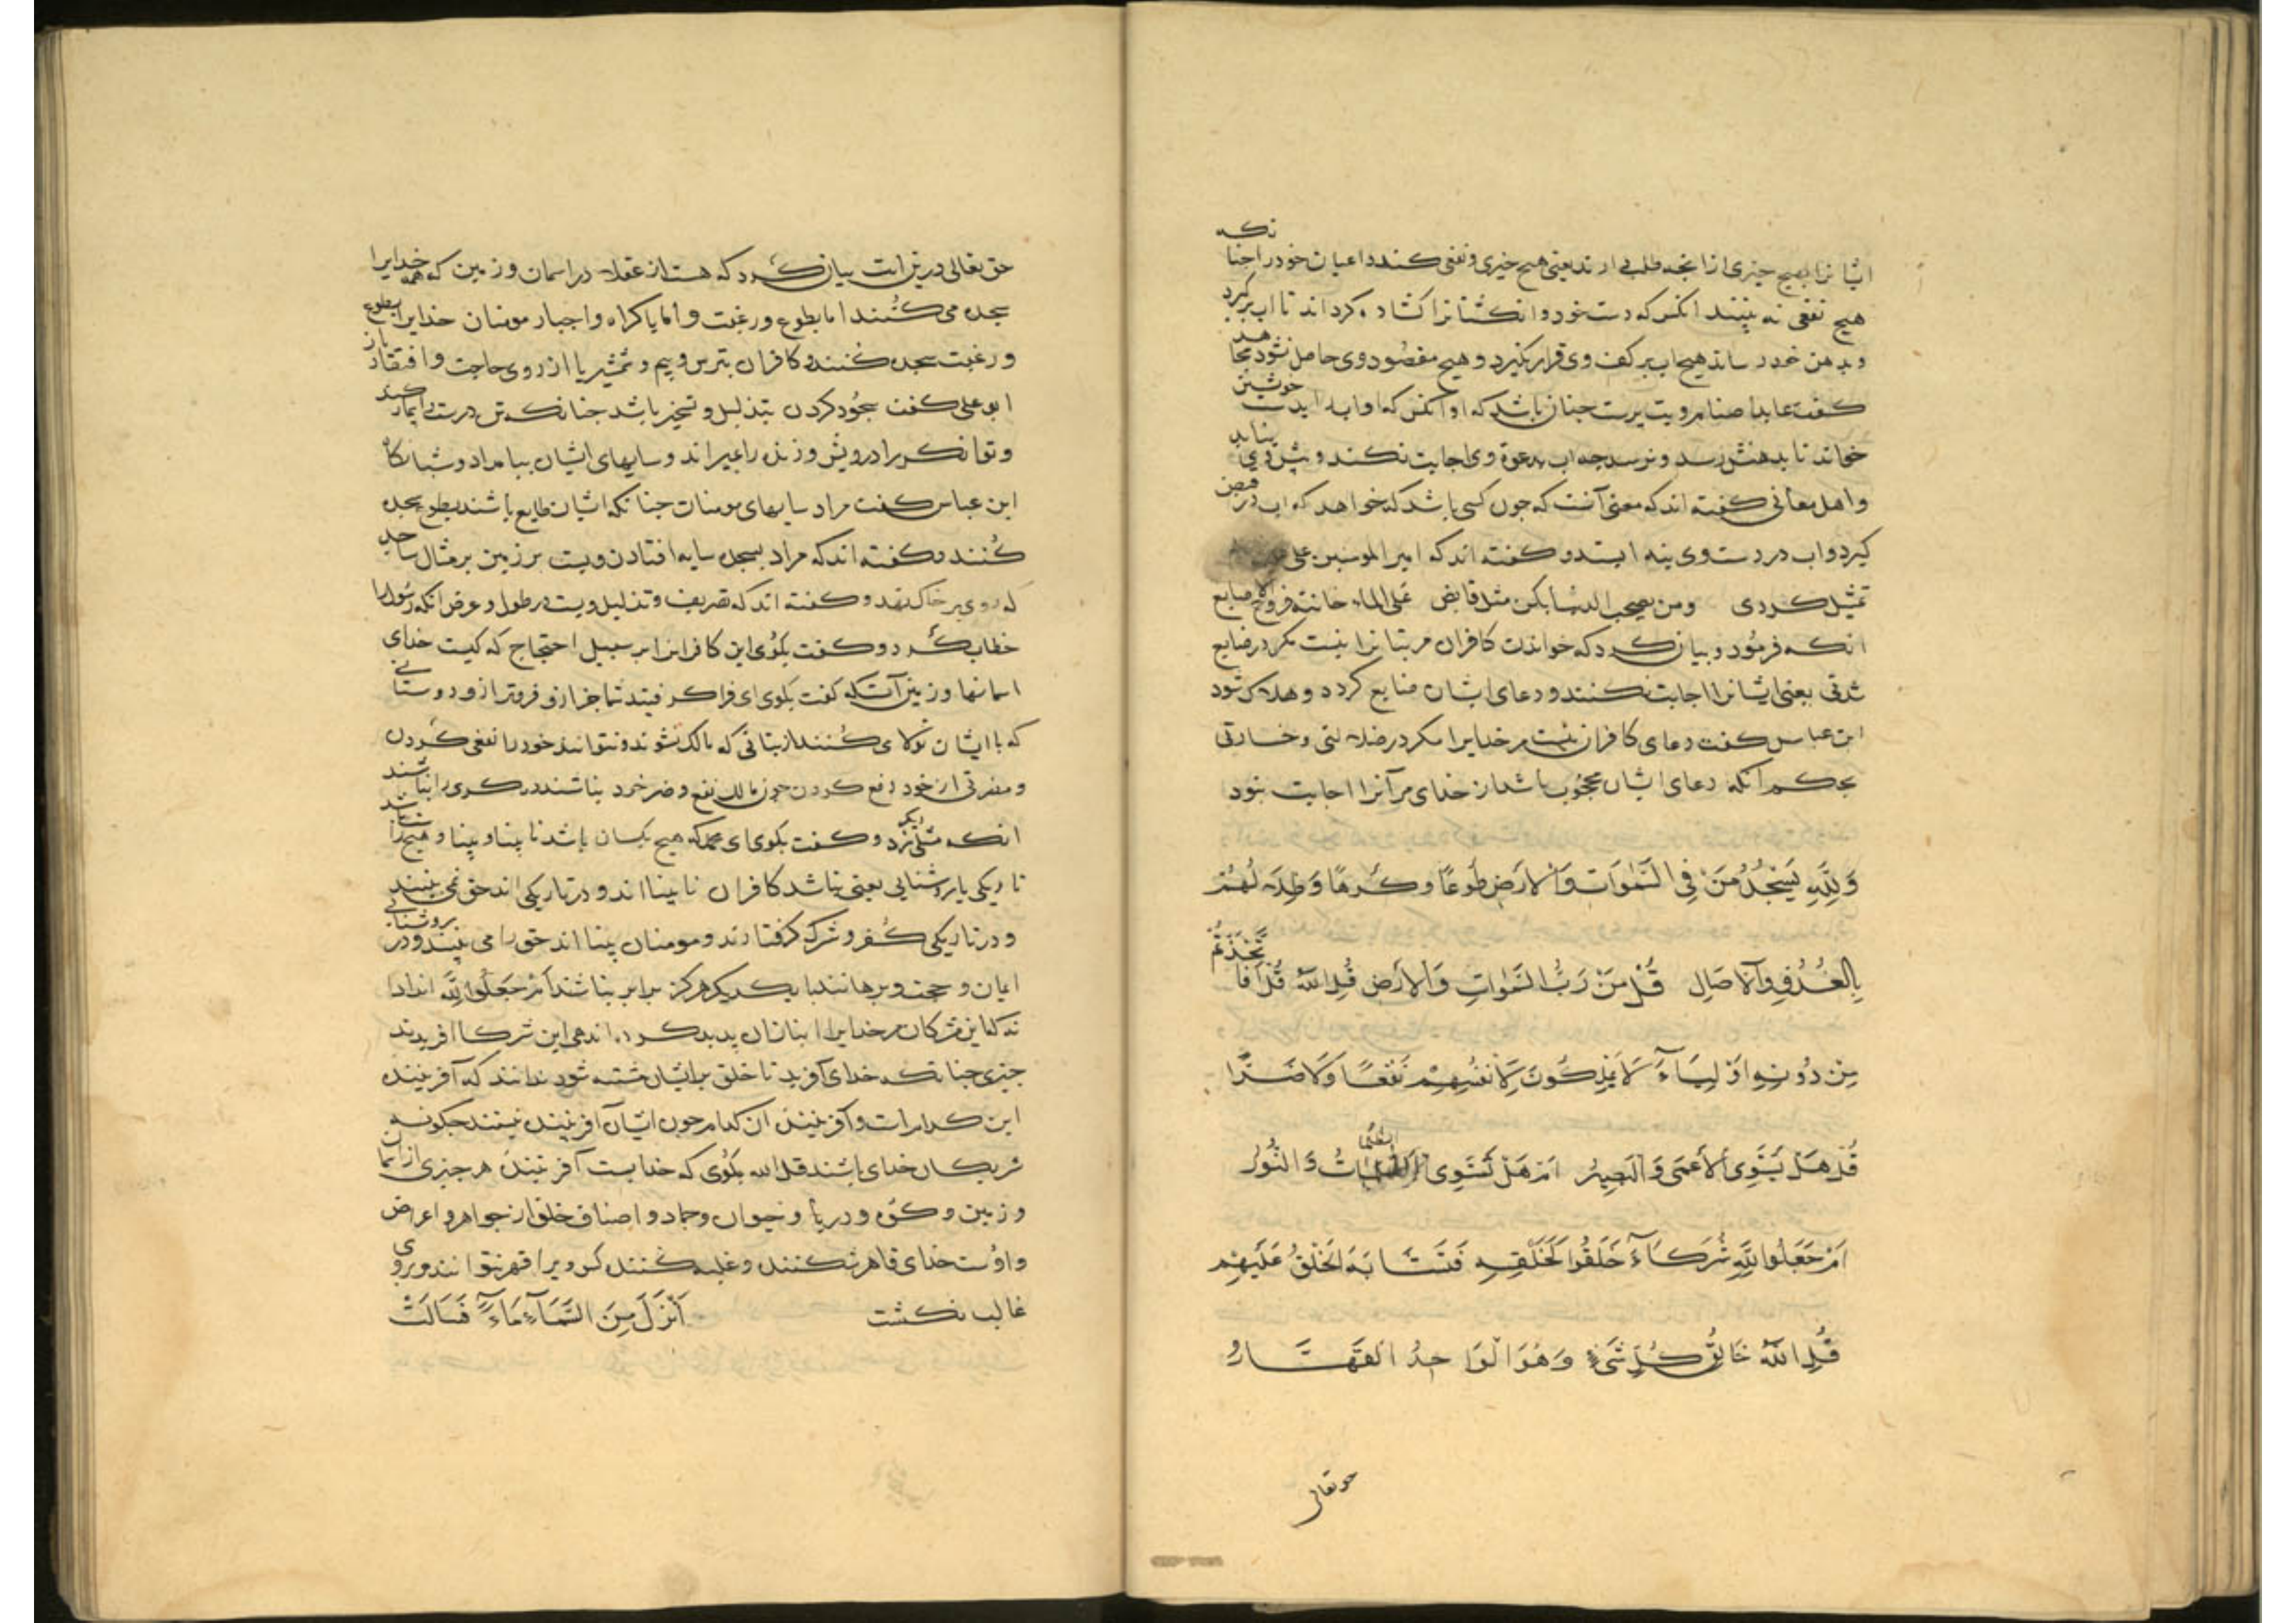 ایشانرا بهیچ چیزی از انچه طلب می ارند یعنی هیچ خیری و نفعی کنند داعیان خود را چنا نکه
هیچ نفعی نه بینند انکس که دست خود و انکشتانرا کشاده کرداند تا اب برکیرد
و بدهن خود رساند هیچ اب بر کف وی قرار نکیرد و هیچ مقصود وی حاصل نشود مجا هد
کفت عابد اصنام و بت پرست چنان باشد که او انکس که او اب به خویشتن
خواند تا بدهنش رسد و نرسد چه اب دعوة وی اجابت نکند و پیش وی نیاید
و اهل معانی کفته اند که معنی آنست که چون کسی باشد که خواهد که اب در قبض
کیرد و اب در دست وی بنه ایستد و کفته اند که امیر المومنین علی
تمثیل کردی ومن یصحب الدنیا یکن مثل قابض علی الماء خانته فروج الاصابع
انکه فرمود و بیان کرد که خواندن کافران مر بتانرا نیست مکر در ضایع
شدنی یعنی ایشانرا اجابت نکنند و دعای ایشان ضایع کردد و هلاک شود
ابن عباس کفت دعای کافران نیست مر خدایرا مکر در ضلالتی و خسارتی
بحکم آنکه دعای ایشان محجوب باشد از خدای مر آنرا اجابت نبود
وَلِلّٰهِ یَسْجُدُ مَنْ فِی السَّمٰوَاتِ وَالْاَرْضِ طَوْعًا وَکَرْهًا وَظِلَالُهُمْ
بِالْغُدُوِّ وَالْاٰصَالِ قُلْ مَنْ رَبُّ السَّمٰوَاتِ وَالْاَرْضِ قُلِ اللّٰهُ قُلْ اَفَا تَّخَذْتُمْ
مِنْ دُونِهِ اَوْلِیَآءَ لَا یَمْلِکُونَ لِاَنْفُسِهِمْ نَفْعًا وَلَا ضَرًّا
قُلْ هَلْ یَسْتَوِی الْاَعْمَی وَالْبَصِیرُ اَمْ هَلْ تَسْتَوِی الظُّلُمَاتُ وَالنُّورُ
اَمْ جَعَلُوا لِلّٰهِ شُرَکَآءَ خَلَقُوا کَخَلْقِهِ فَتَشَابَهَ الْخَلْقُ عَلَیْهِمْ
قُلِ اللّٰهُ خَالِقُ کُلِّ شَیْءٍ وَهُوَ الْوَاحِدُ الْقَهَّارُ
حق تعالی
حق تعالی درین ایت بیان کرد که هست از عقلا در اسمان و زمین که همه خدایرا
سجده می کنند اما بطوع و رغبت و اما باکراه و اجبار مومنان خدایرا بطوع
و رغبت سجده کنند و کافران بترس و بیم و شمشیر یا از روی حاجت و افتقار باز
ابو علی کفت سجود کردن بتذلیل و تسخیر باشد چنانکه تن درست بیمار کند
و توانکر را درویش و زنده را بمیراند و سایهای ایشان ببامداد و شبانکاه
ابن عباس کفت مراد سایهای مومنان چنانکه ایشان طایع باشند بطوع سجده
کنند و کفته اند که مراد بسجده سایه افتادن ویست بر زمین بر مثال ساجد
که روی بر خاک نهد و کفته اند که تصریف و تذلیل ویست در طول و عرض انکه رسول را
خطاب کرد و کفت بکوی این کافرانرا بر سبیل احتجاج که کیست خدای
اسمانها و زمین آنکه کفت بکوی ای فراکرفتید شما جز ازو فروتر ازو دوستانی
که با ایشان تولا می کنند از بتانی که مالک نشوند و نتوانند خود را نفعی کردن
و مضرتی از خود دفع کردن چون مالک نفع و ضر خود نباشند دیکری را نباشند
انکه مثلی دیکر زد و کفت بکوی ای محمد که هیچ یکسان باشد نابینا و بینا و هیچ راست باشد
تاریکی با روشنایی یعنی نباشد کافران نابینا اند و در تاریکی اند حق نمی بینند
و در تاریکی کفر و شرک کرفتارند و مومنان بینا اند حق را می بینند و در روشنایی
ایمان و حجت و برهانند با یکدیکر هرکز برابر نباشند اَمْ جَعَلُوا لِلّٰهِ اندادا
نه که این مشرکان مر خدایرا انبازان پدید کرده اند هی این شرکا افریدند
چیزی چنانکه خدای آفرید تا خلق بر ایشان مشتبه شود ندانند که آفریننده
این کدام است و آفریننده ان کدام چون ایشان آفریننده نیستند چکونه
شریکان خدای باشند قل الله بکوی که خدایست آفریننده هر چیزی از اسمان
و زمین و کوه و دریا و حیوان و جماد و اصناف خلق از جواهر و اعراض
و اوست خدای قاهر نکنند و غلبه کنند کس ویرا قهر نتوانند و بر وی
غالب نکشت اَنْزَلَ مِنَ السَّمَآءِ مَآءً فَسَالَتْ